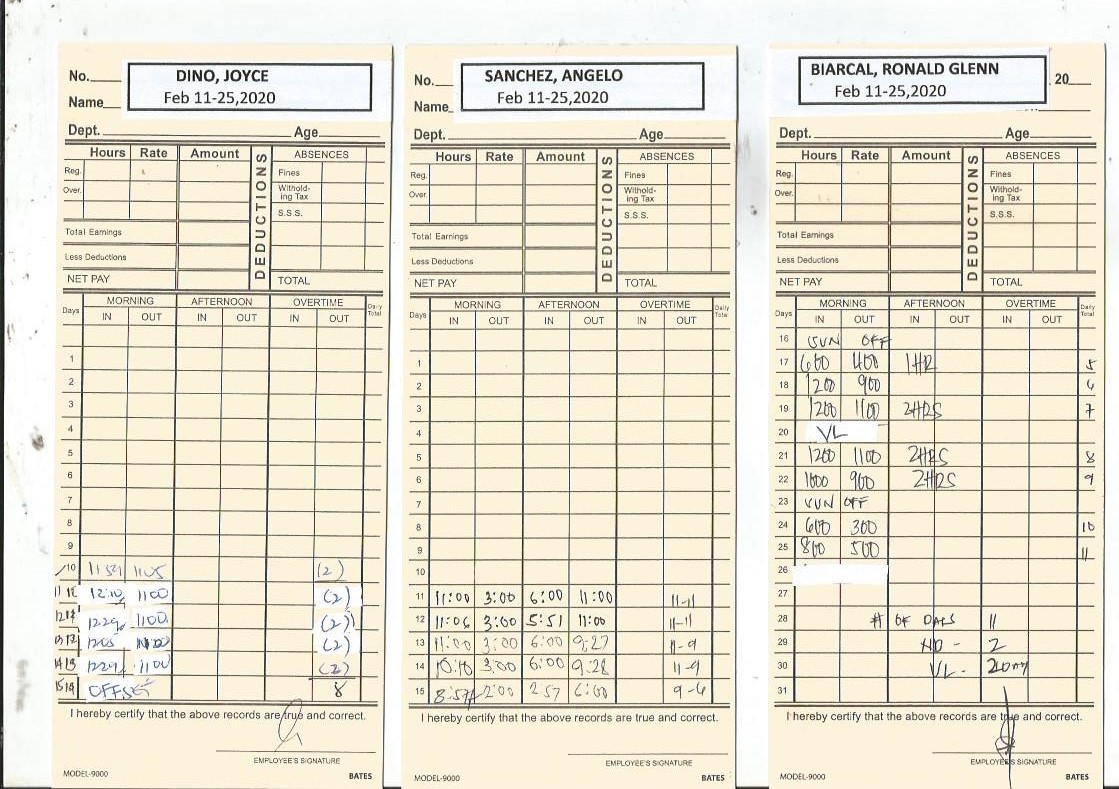 No.____ DINO, JOYCE
Name__ Feb 11-25,2020
Dept. Age
Hours Rate Amount DEDUCTIONS ABSENCES
Reg. Fines
Over. Withold-
ing Tax
S.S.S.
Total Earnings
Less Deductions
NET PAY TOTAL
Days MORNING AFTERNOON OVERTIME Daily Total
IN OUT IN OUT IN OUT
1
2
3
4
5
6
7
8
9
10 1159 1105 (2)
11 1100 (2)
12 1229 1100 (2)
13 1205 (2)
14 1229 1100 (2)
15 OFFSET 8
I hereby certify that the above records are true and correct.
EMPLOYEE'S SIGNATURE
MODEL-9000 BATES
No.____ SANCHEZ, ANGELO
Name_ Feb 11-25,2020
Dept. Age
Hours Rate Amount DEDUCTIONS ABSENCES
Reg. Fines
Over. Withold-
ing Tax
S.S.S.
Total Earnings
Less Deductions
NET PAY TOTAL
Days MORNING AFTERNOON OVERTIME Daily Total
IN OUT IN OUT IN OUT
1
2
3
4
5
6
7
8
9
10
11 11:00 3:00 6:00 11:00 11-11
12 11:06 3:00 5:51 11:00 11-11
13 11:00 3:00 6:00 9:27 11-9
14 3:00 6:00 9:28 11-9
15 8:57 2:00 2:57 6:00 9-6
I hereby certify that the above records are true and correct.
EMPLOYEE'S SIGNATURE
MODEL-9000 BATES
BIARCAL, RONALD GLENN 20
Feb 11-25,2020
Dept. Age
Hours Rate Amount DEDUCTIONS ABSENCES
Reg. Fines
Over. Withold-
ing Tax
S.S.S.
Total Earnings
Less Deductions
NET PAY TOTAL
Days MORNING AFTERNOON OVERTIME Daily Total
IN OUT IN OUT IN OUT
16 SUN OFF
17 600 400 1HR 5
18 1200 900 6
19 1200 1100 2HRS 7
20 VL
21 1200 1100 2HRS 8
22 1000 900 2HRS 9
23 SUN OFF
24 600 300 10
25 800 500 11
26
27
28 # OF DAYS 11
29 2
30 VL -
31
I hereby certify that the above records are true and correct.
EMPLOYEE'S SIGNATURE
MODEL-9000 BATES